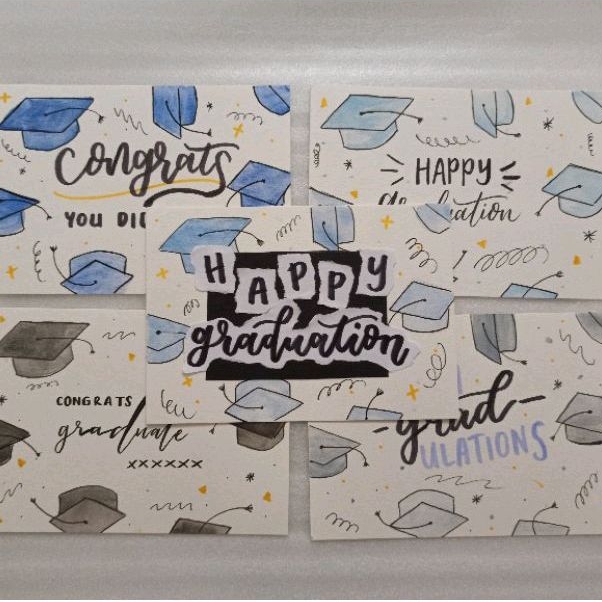 congrats
YOU DID
HAPPY
graduation
HAPPY
graduation
CONGRATS
graduate
xxxxxx
grad
ULATIONS